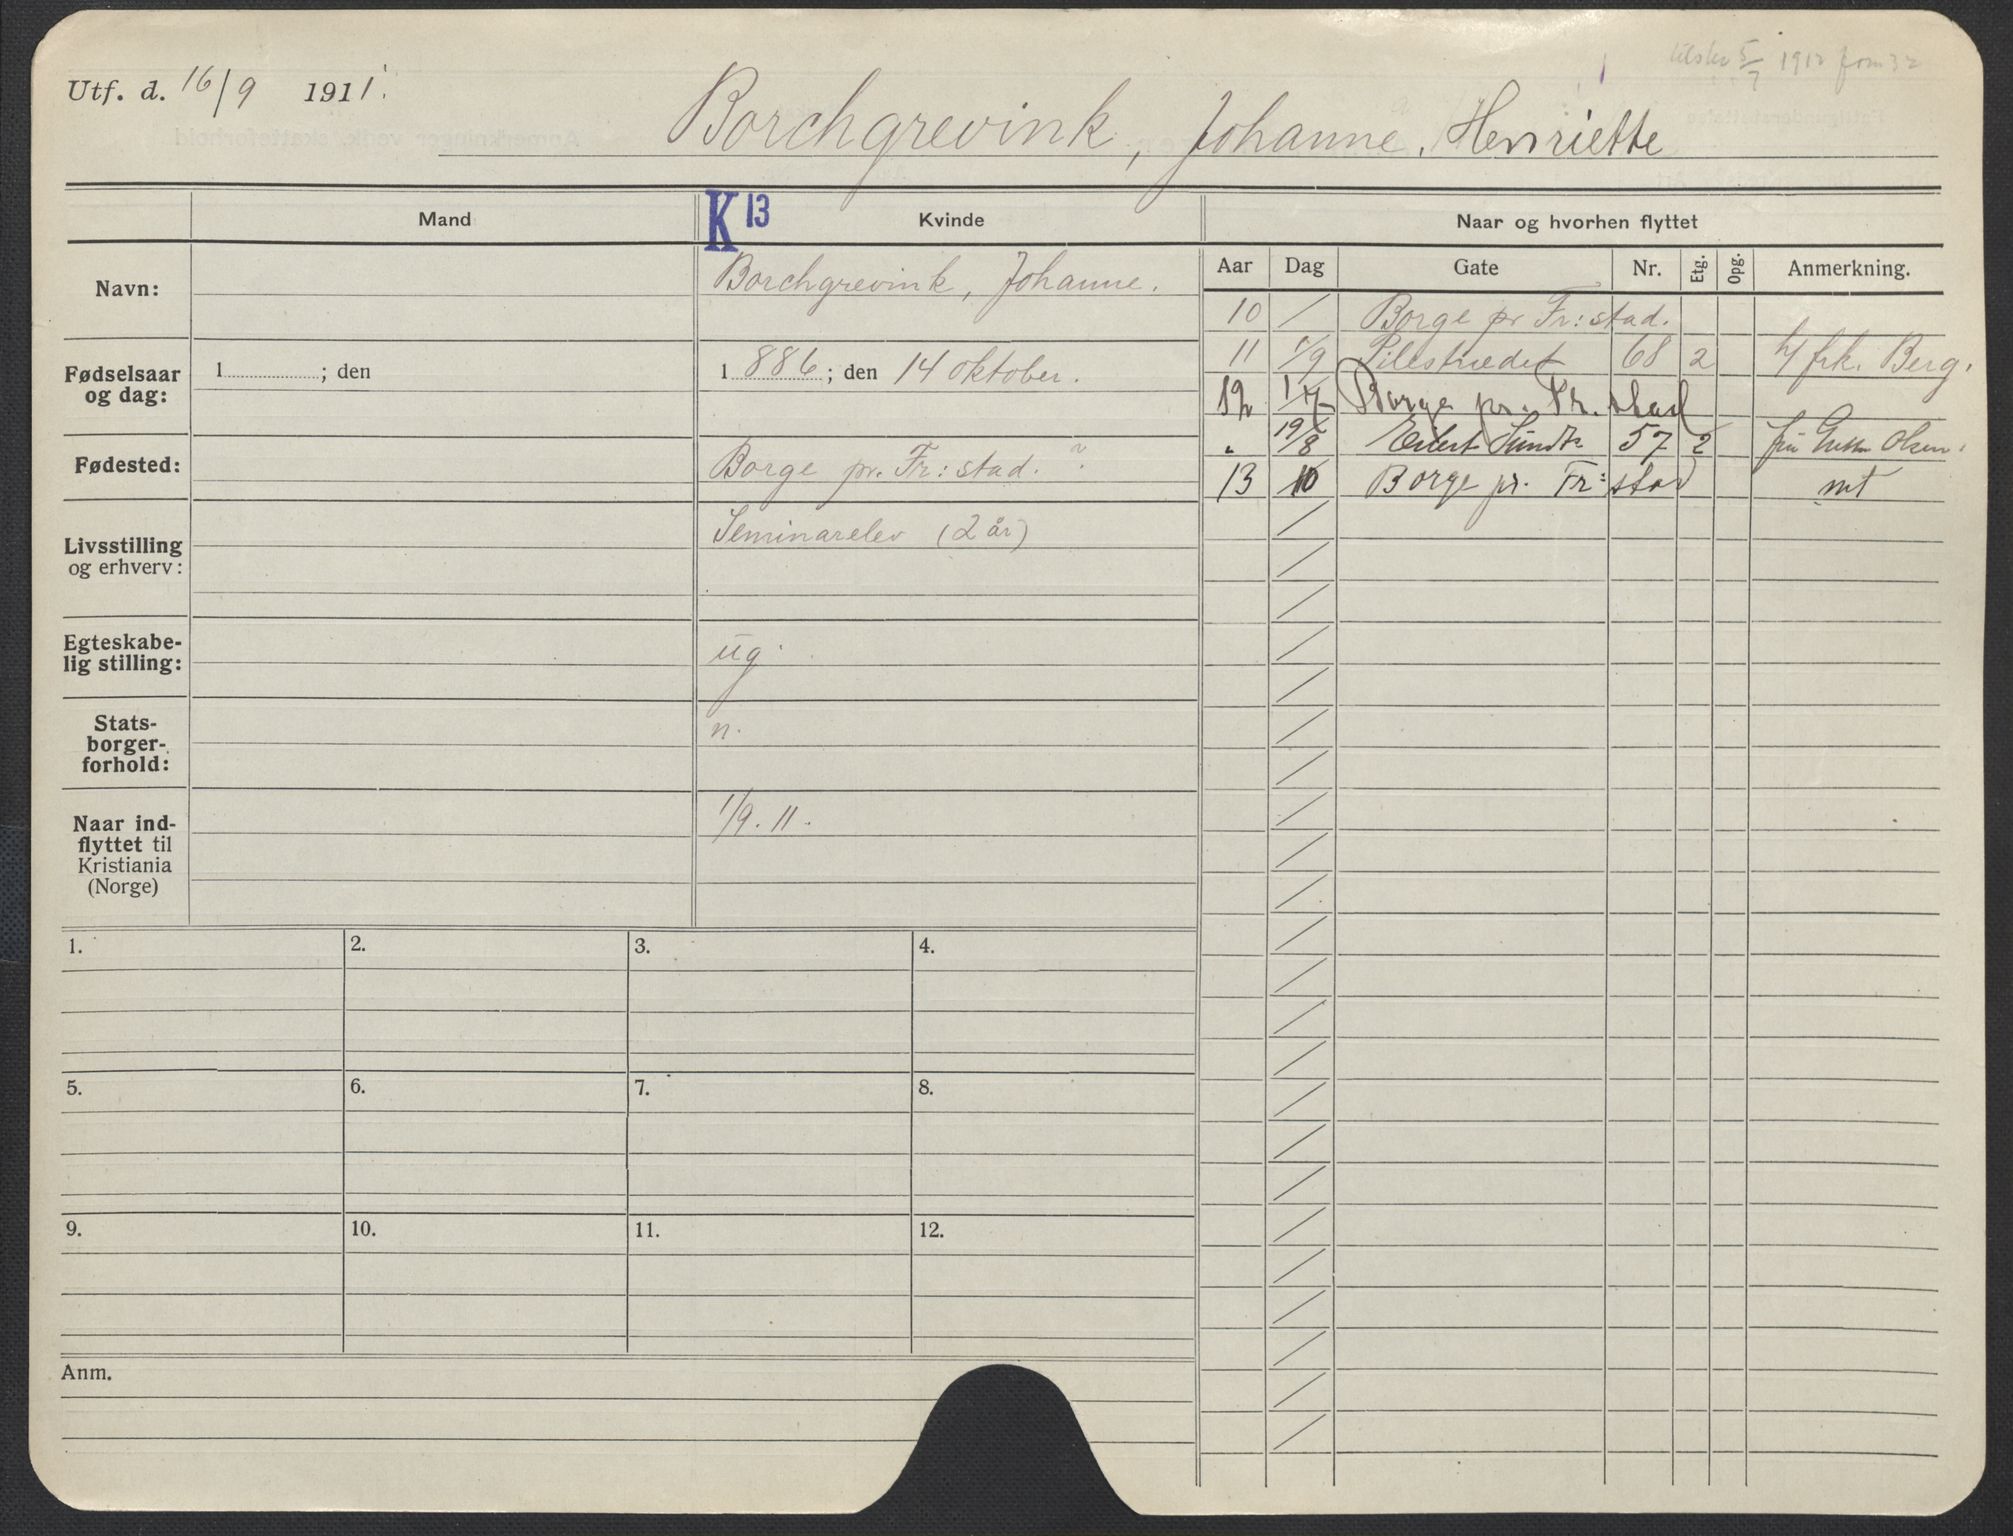 Utf. d. 16/9 1911.
1912
Borchgrevink, Johanne, Henriette
Mand
K 13
Kvinde
Naar og hvorhen flyttet
Aar Dag Gate Nr. Etg. Opg. Anmerkning.
Navn:
Borchgrevink, Johanne.
Fødselsaar og dag:
1 ; den
1 886 ; den 14 oktober.
Fødested:
Borge pr. Fr:stad. ?
Livsstilling og erhverv:
Seminarelev (2 år)
Egteskabe-
lig stilling:
ug.
Stats-
borger-
forhold:
n.
Naar ind-
flyttet til
Kristiania
(Norge)
1/9. 11.
10 / Borge pr Fr:stad.
11 1/9 Pilestrædet 68 2 h/ frk. Berg.
12 1/7 Borge pr. Fr.stad
" 19/8 Eilert Sundts 57 2 fru Olsen.
13 10 Borge pr. Fr:stad mt
1. 2. 3. 4.
5. 6. 7. 8.
9. 10. 11. 12.
Anm.